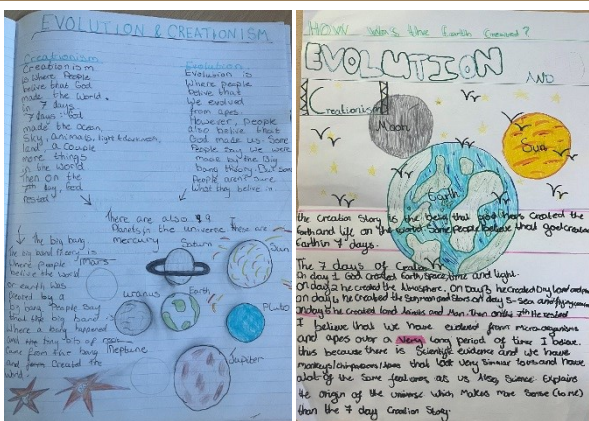 EVOLUTION & CREATIONISM
Creationism
Creationism
is where People
believe that God
made the World.
in 7 days.
7 days: God
made the ocean,
Sky, animals, light & darkness,
land a couple
more things
in the World
Then on the
7th day, God
rested
Evolution
Evolution is
Where people
belive that
We evolved
from apes.
However, people
also belive that
God made us. Some
People say we were
made by the Big
Bang theory. But some
People aren't sure
What they belive in.
There are also 9
Planets in the universe these are
mercury
Mars
Saturn
Sun
Uranus
Earth
Pluto
Neptune
Jupiter
The big bang
The big bang theory is
where people
believe the world
or earth was
created by a
big bang. People say
that the big bang is
Where a bang happened
and tiny bits of rock
came from the bang
and Created the
World.
HOW was the Earth Created?
EVOLUTION
Creationism
Moon
Sun
Earth
the creation Story is the being that god created the
Earth and life on the world. Some people believe that god created
Earth in 7 days.
The 7 days of Creation
On day 1 God created Earth, Space, time and light.
On day 2 he created the Atmosphere. On Day 3 he created Dry land and
on day 4 he created the Sun, moon and Stars on day 5- Sea and flying
on day 6 he created land Animals and Man. Then on the 7th He rested
I believe that we have evolved from microorganisms
and apes over a Very long period of time I believe
this because there is Scientific evidence and we have
monkeys/chimpanzees/Apes that look very Similar to us and have
alot of the Same features as us Also, Science Explains
the origin of the universe which Makes more Sense (to me)
than the 7 day Creation Story.